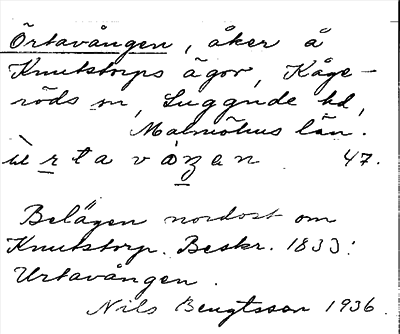 Örtavången, åker å
Knutstorps ägor, Kåge-
röds sn, Luggude hd,
Malmöhus län.
r t a v å ŋ e n 47.
Belägen nordost om
Knutstorp. Beskr. 1833:
Urtavången.
Nils Bengtsson 1936.